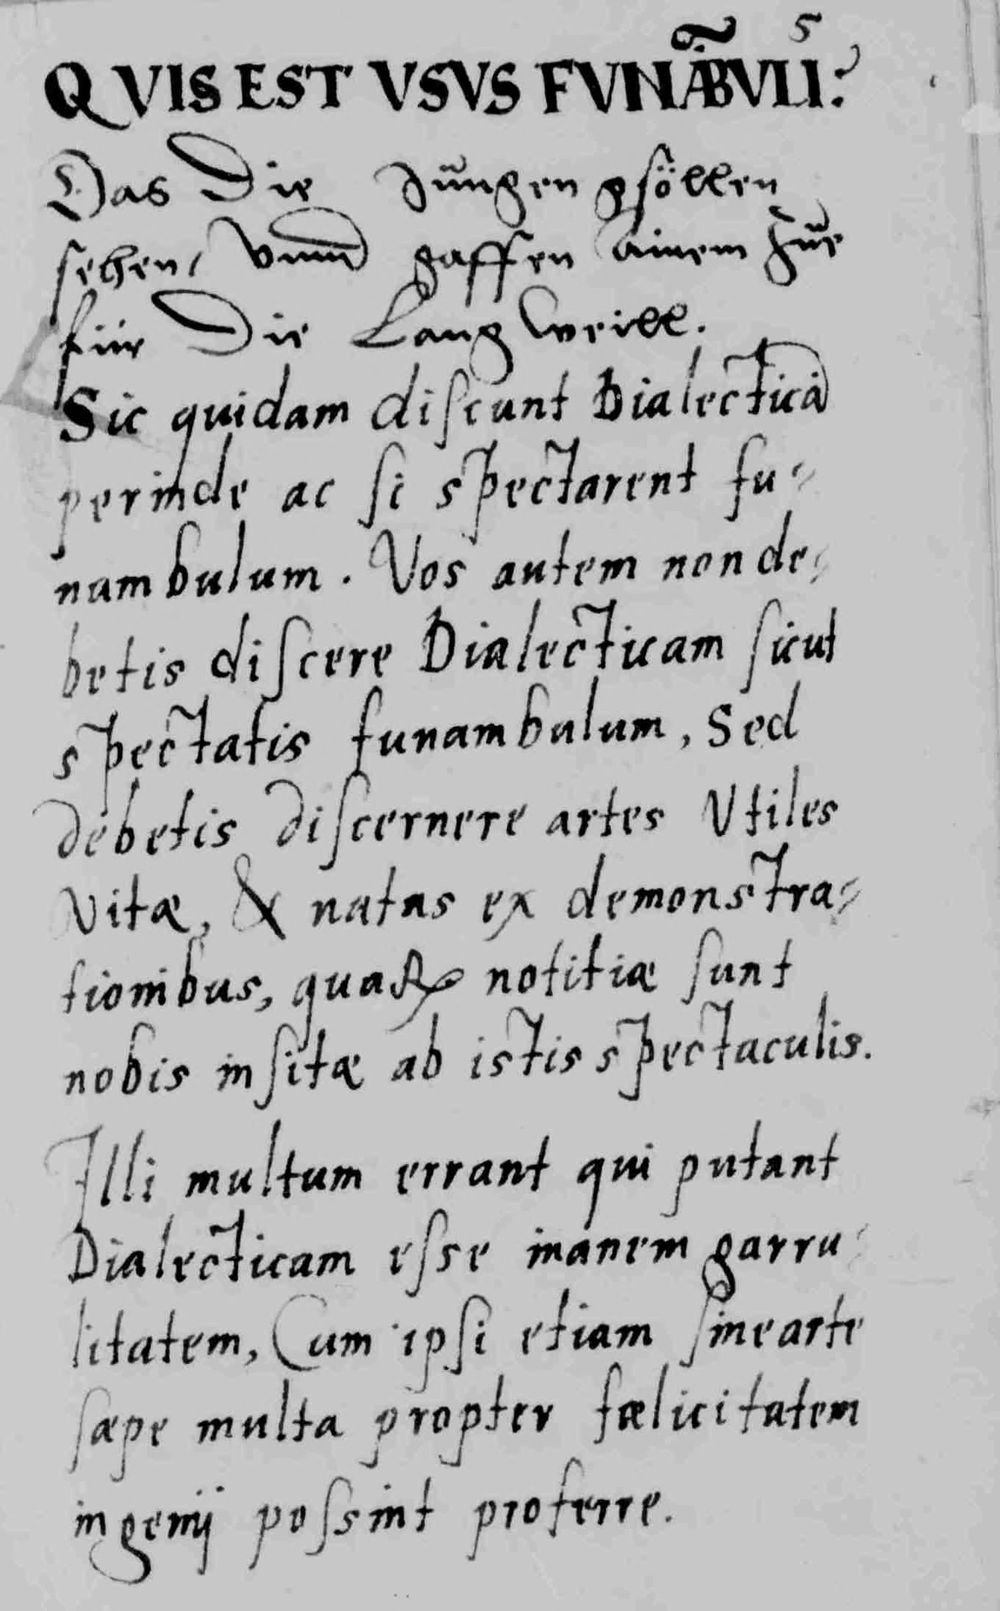 5
QVIS EST VSVS FVNÃBVLI?
Das Die Jungen gsöllen
sehen, vnnd gaffen ainem Zue
für Die Lang weill.
Sic quidam diſcunt Dialecticā
perinde ac ſi spectarent fu-
nambulum. Vos autem non de-
betis diſcere Dialecticam ſicut
spectatis funambulum, Sed
debetis diſcernere artes Vtiles
Vitæ, & natas ex demonstra-
tionibus, quaꝝ notitiæ ſunt
nobis inſitæ ab istis spectaculis.
Illi multum errant qui putant
Dialecticam eſse inanem garru-
litatem, Cum ipſi etiam ſine arte
ſæpe multa propter fælicitatem
ingenij poſsint proferre.